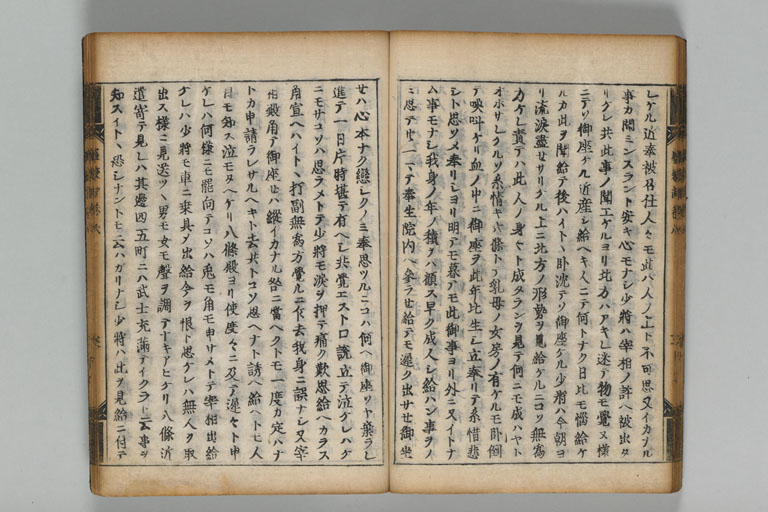 レケル近奉被召仕人々モ此ハ人ノ上ト不可思又イカナル
事カ聞ミンスラント安キ心モナシ少將ハ宰相ノ許ヘ被出タ
リケレ共此事ノ聞エケルヨリ北方ハアキレ迷テ物モ覺ヌ樣
ニテソ御座ケル近産シ給ヘキ人ニテ何トナク日比モ惱給ケ
ルカ此ヲ聞給テ後ハイトヽ卧沈テソ御座ケル少將ハ今朝ヨ
リ流淚盡サリケル上ニ北方ノ形勢ヲ見給ケルニコソ無爲
方ケレ責テハ此人ノ身々ト成タランヲ見テ何ニモ成ハヤト
オホサレケルソ糸惜キ六條トテ乳母ノ女房ノ有ケルモ卧倒
テ喚叫ケリ血ノ中ニ御座ヲ此年比生シ立奉リテ糸惜悲
シト思ツメ奉リシヨリ明テモ暮テモ此御事ヨリ外ニ又イトナ
ム事モナシ我身ノ年ノ積ヲハ顧ス早ク成人シ給ハン事ヲノ
ミ思テ廿一マテ奉生院內ヘ參ラセ給テモ遲ク出サセ御坐
セハ心本ナク戀シクノミ奉思ツルニコハ何ヘ御座ソヤ棄ラレ
進テ一日片時堪テ有ヘシ共覺エスト口說立テ泣ケレハケ
ニモサコソハ思ラメトテ少將モ淚ヲ押テ痛ク歎思給ヘカラス
角宣ヘハイトヽ打副無爲方覺ルニ乍去我身ニ誤ナシ又宰
相殿角テ御座セハ縱イカナル咎ニ當ヘクトモ一度カ定ハナ
トカ申請ラレサルヘキト去共トコソ思ヘナト誘ヘ給ヘトモ人
目モ知ス泣モタヘケリ八條殿ヨリ使度々ニ及テ遲々ト申
ケレハ何樣ニモ罷向テコソハ兎モ角モ申サメトテ宰相出給
ケレハ少將モ車ニ乘具メ出給今ヲ恨ト思ケレハ無人ヲ取
出ス樣ニ見送ツヽ男モ女モ聲ヲ調テ キアヒケリ八條近
遣寄テ見レハ其邊四五町ニハ武士充滿テイクラト云事ヲ
知スイトヽ恐シナントモ云ハカリナシ少將ハ此ヲ見給ニ付テ